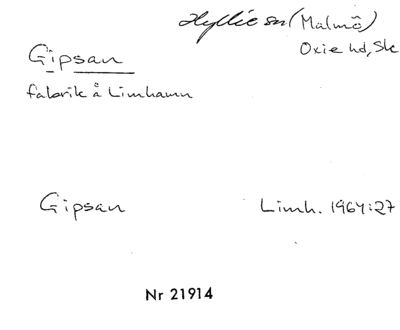 Hyllie sn (Malmö)
Oxie hd, Sk
Gipsan
fabrik å Limhamn
Gipsan Limh. 1964:27
Nr 21914